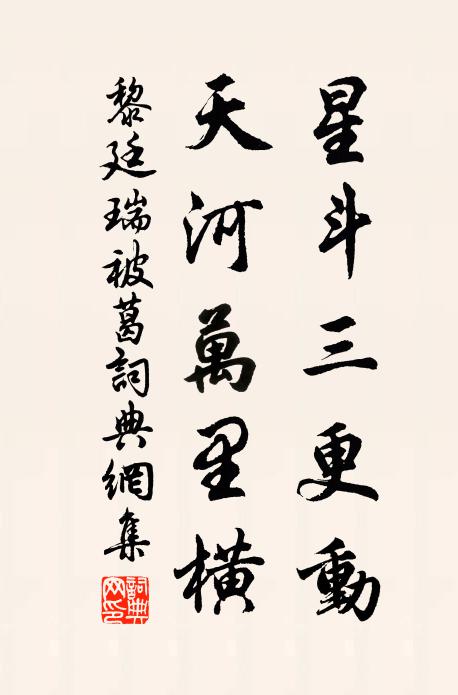 星斗三更動
天河萬里橫
黎廷瑞被葛詞典網集
詞典
网印